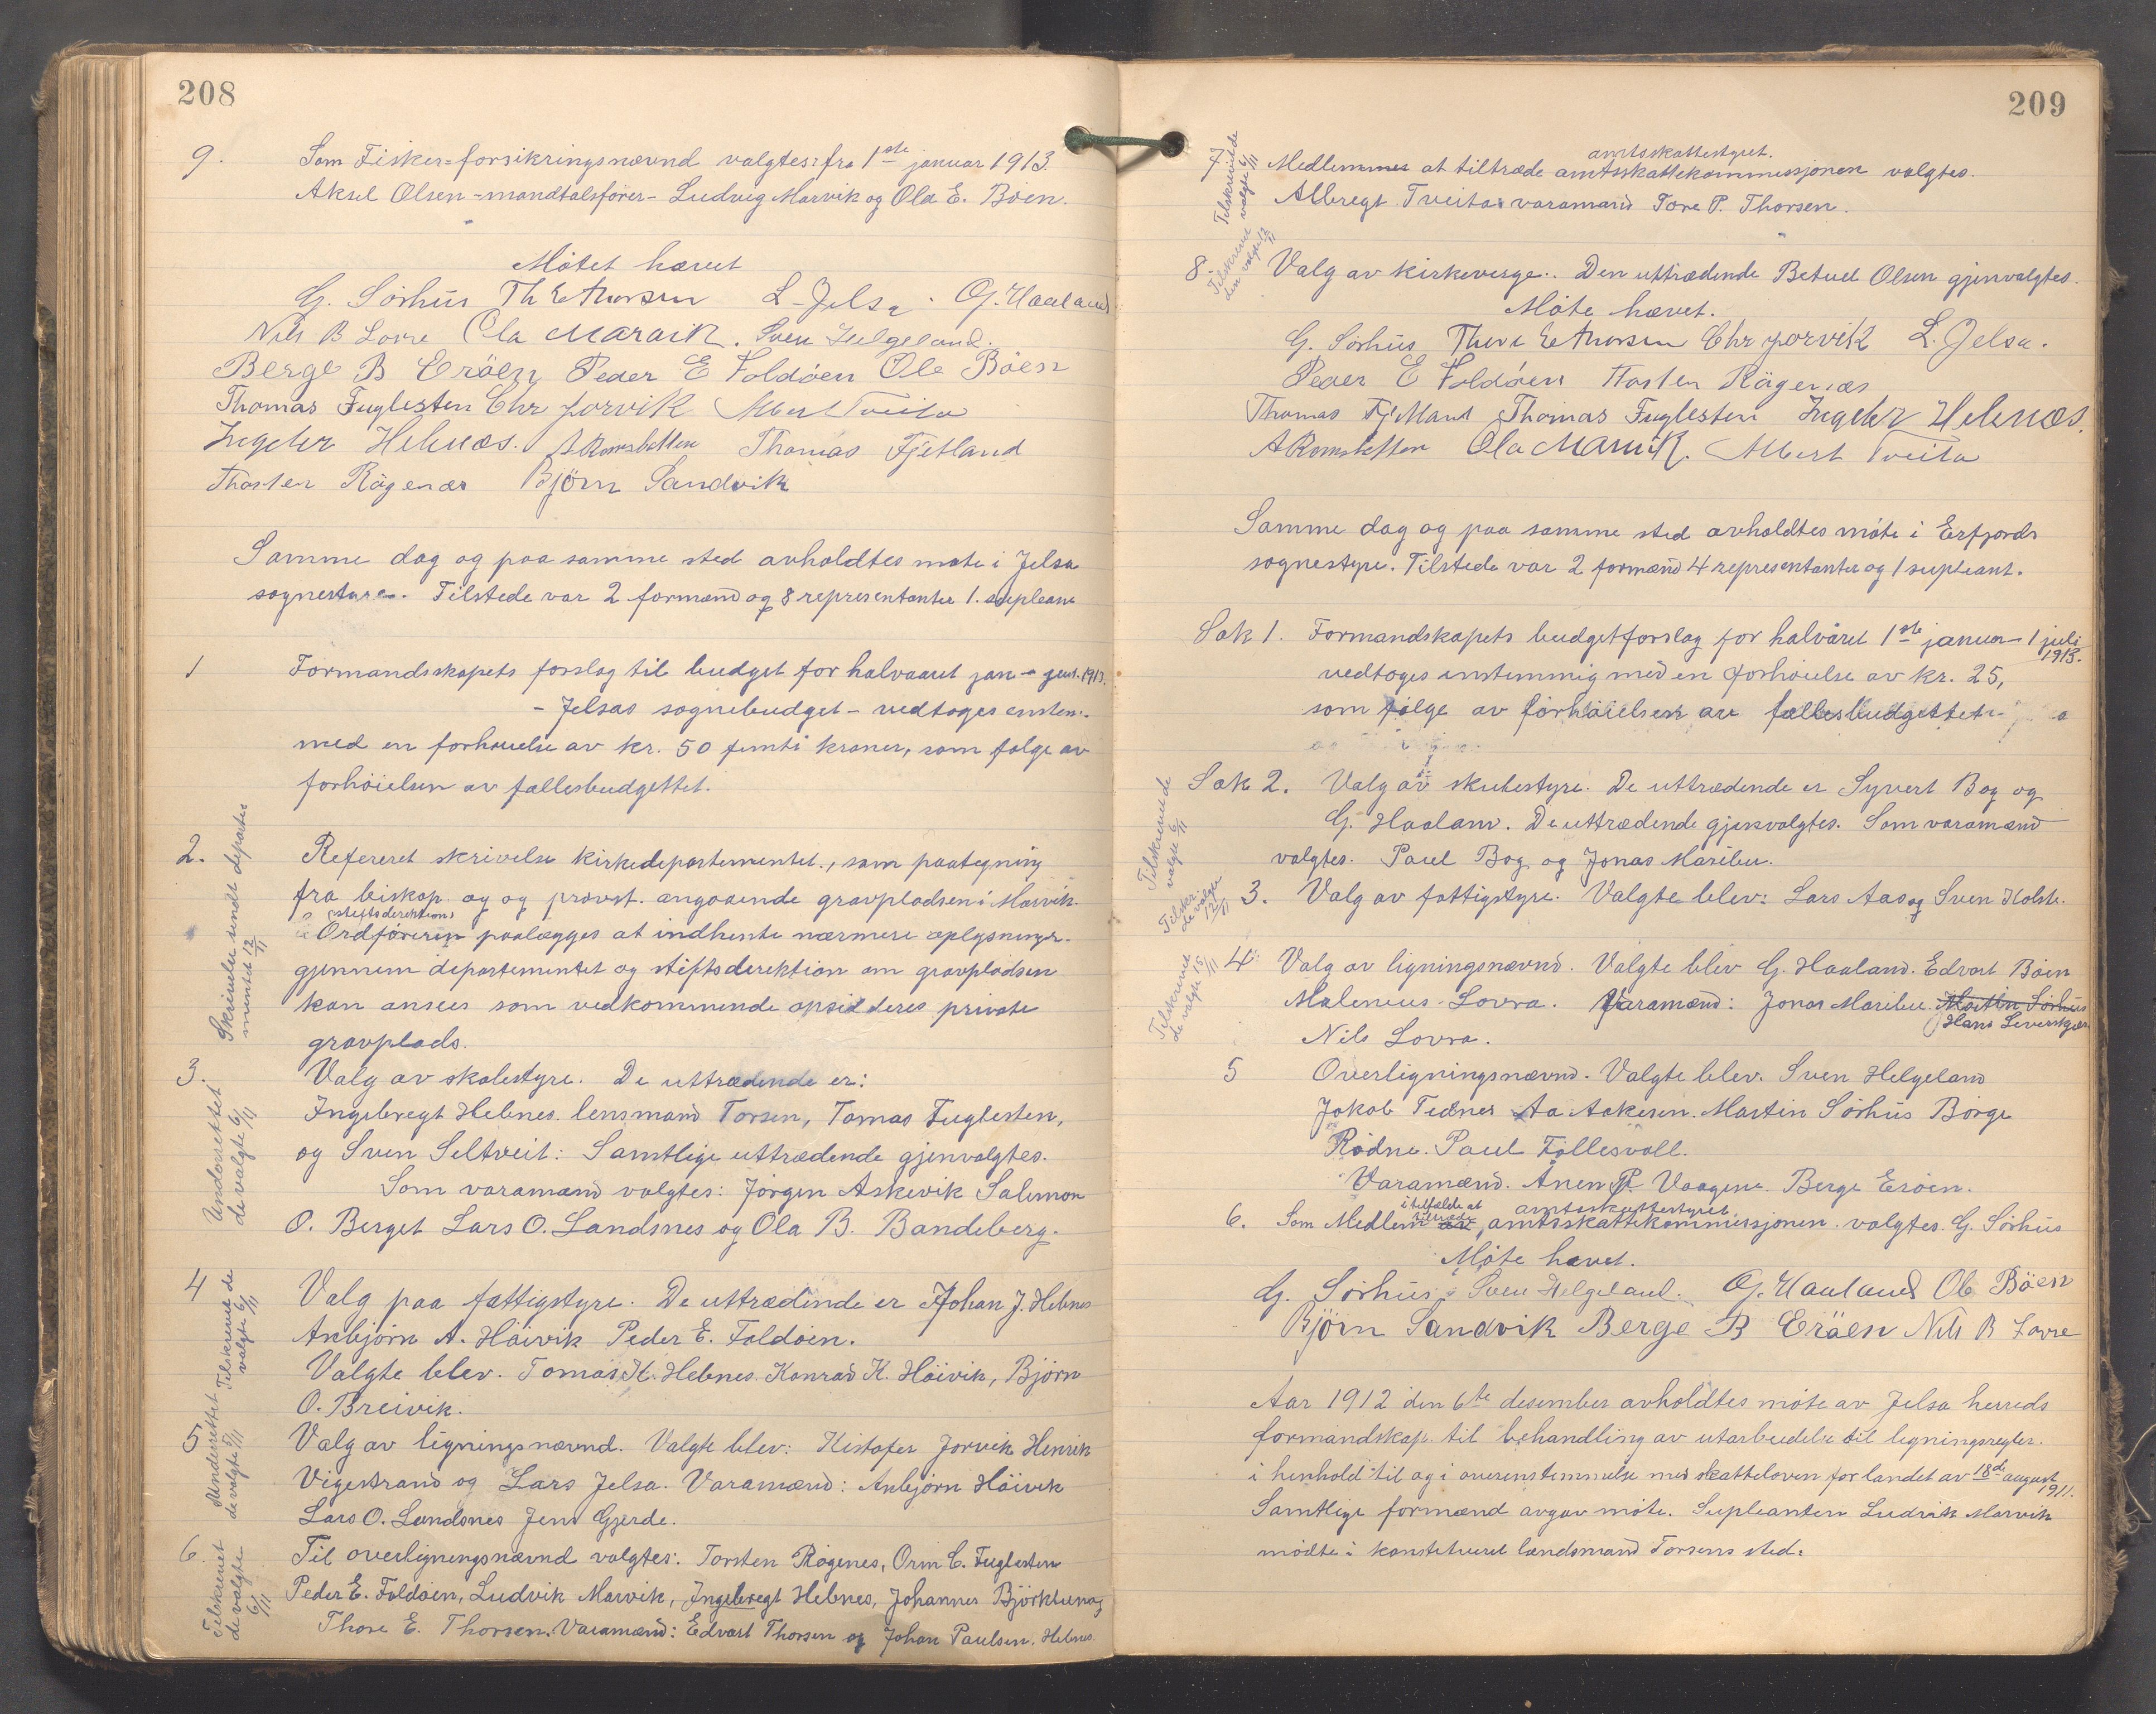 208
9. Som Fisker=forsikringsnævnd valgtes: fra 1ste januar 1913.
Aksel Olsen - mandtalsfører - Ludvig Marvik og Ola E. Bøen.
Møtet hævet
G. Sörhus Th E Thorsen L. Jelsa. G. Haaland
Nils B Lovre Ola Marvik. Sven Helgeland.
Berge B Eröen Peder E Foldöen Ole Böen
Thomas Fuglesten Chr Jorvik Albert Tveita
Ingebr Hebnes. A Romsbotten Thomas Fjetland
Thorsten Rägenæs Björn Sandvik
Samme dag og paa samme sted avholdtes møte i Jelsa
sognestyre. Tilstede var 2 formænd og 8 representanter 1. supleant
1 Formandskapets forslag til budget for halvaaret jan - juni. 1913.
- Jelsas sognebudget - vedtoges enstem.
med en forhøielse av kr. 50 femti kroner, som følge av
forhöielsen av fællesbudgettet.
Skrivelse sendt departe
mentet 12/11
2. Refereret skrivelse kirkedepartementet., som paategning
fra biskop og og provst. angaaende gravpladsen i Marvik.
stiftsdirektion
Ordføreren paalægges at indhente nærmere oplysninger
gjennem departementet og stiftsdirektion om gravpladsen
kan ansees som vedkommende opsid deres private
gravplads.
Underrettet
de valgte 6/11
3. Valg av skolestyre. De uttrædende er:
Ingebregt Hebnes lensmand Torsen, Tomas Fuglesten,
og Sven Seltveit: Samtlige uttrædende gjenvalgtes.
Som varamænd valgtes: Jörgen Askevik Salemon
O. Berget Lars O. Landsnes og Ola B. Bandeberg.
Tilskrevet de
valgte 6/11
4 Valg paa fattigstyre. De uttrædende er Johan J. Hebnes
Anbjörn A. Höivik Peder E. Foldöen.
Valgte blev. Tomas K. Hebnes Konrad K. Höivik, Björn
O. Breivik.
Underrettet
de valgte 6/11
5 Valg av ligningsnævnd. Valgte blev: Kistofer Jorvik Henrik
Vigestrand og Lars Jelsa. Varamænd: Anbjörn Höivik
Lars O. Landsnes Jens Gjerde.
Tilskrevet
de valgte
6/11
6. Til overligningsnævnd valgtes: Torsten Rägenes, Orm C. Fuglesten
Peder E. Foldöen, Ludvik Marvik, Ingebregt Hebnes, Johannes Björklund og
Thore E. Thorsen. Varamænd: Edvart Thorsen og Johan Paulsen, Hebnes.
209
Tilskrevet de
valgte 6/11
amtsskattestyret.
7. Medlemmer at tiltræde amtsskattekommissjonen valgtes.
Albregt Tveita varamand Tore P. Thorsen.
Tilskrevet
den valgte 12/11
8. Valg av kirkeverge. Den uttrædende Betuel Olsen gjenvalgtes.
Møte hævet.
G. Sörhus Thore E Thorsen Chr Jorvik L. Jelsa.
Peder E Foldöen Thorsten Rägenæs
Thomas Fjetland Thomas Fuglesten Ingebr Hebnes.
A Romsbotten Ola Marvik. Albert Tveita
Samme dag og paa samme sted avholdtes möte i Erfjords
sognestyre. Tilstede var 2 formænd 4 representanter og 1 supleant.
Sak 1. Formandskapets budgetforslag for halvåret 1ste januar - 1 juli
1913.
vedtoges enstemmig med en forhøielse av kr. 25,
som følge av förhöielsen av fællesbudgettet
Tilskrevet de
valgte 6/11
Sak 2. Valg av skolestyre. De uttrædende er Syvert Bog og
G. Haaland. De uttrædende gjenvalgtes. Som varamænd
valgtes. Paul Bog og Jonas Maribu.
Tilskr.
de valgte
12/11
3. Valg av fattigstyre. Valgte blev: Lars Aas og Sven Holste.
Tilskrevet
de valgte 15/11
4. Valg av ligningsnævnd. Valgte blev G. Haaland. Edvart Böen
Malenius Lovra. Varamænd: Jonas Maribu Martin Sörhus
Hans Leverskjær
Nils Lovra.
5 Overligningsnævnd. Valgte blev. Sven Helgeland
Jakob Tednes Aa Aakesen. Martin Sörhus Börge
Rødne. Paul Follesvoll.
Varamænd. Anen P. Vaagene. Berge Eröen.
i tilfælde at
tiltræde amtsskattestyret
6. Som Medlem av amtsskattekommissjonen valgtes G. Sörhus
Møte hævet.
G. Sörhus Sven Helgeland. G. Haaland Ole Böen
Björn Sandvik Berge B Eröen Nils B Lovre
Aar 1912 den 6te desember avholdtes møte av Jelsa herreds
formandskap til behandling av utarbeidelse til ligningsregler
i henhold til og i overensstemmelse med skatteloven for landet av 18de august
1911.
Samtlige formænd avgav møte. Supleanten Ludvik Marvik
mödte i konstitueret lændsmand Torsens sted.